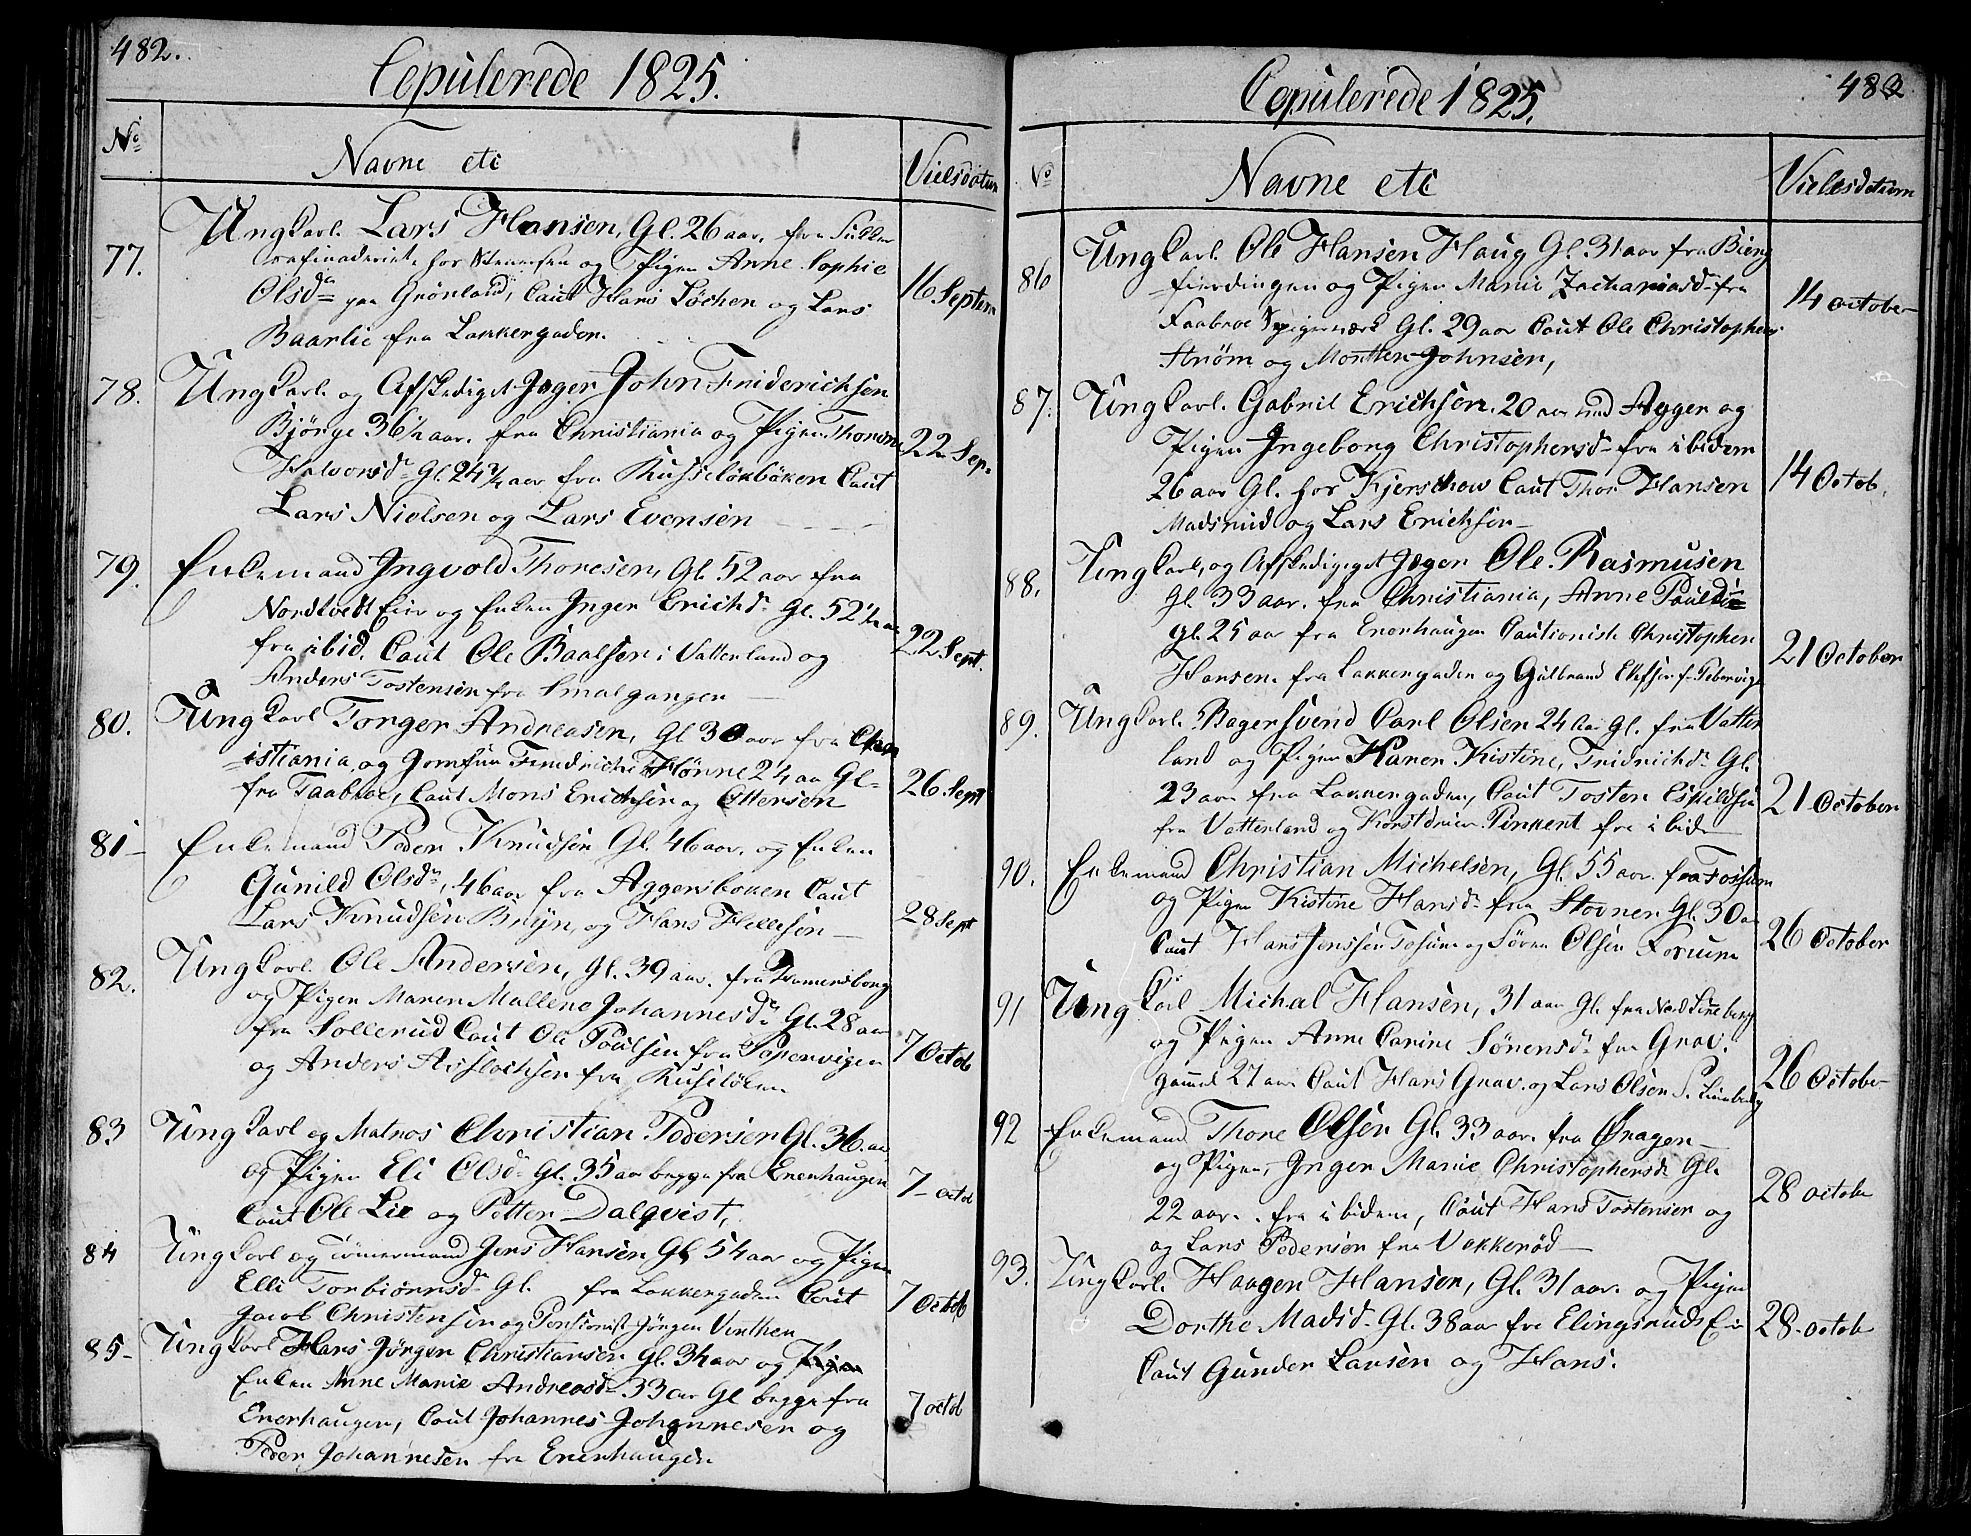 482.
Copulerede 1825.
No
Navne etc
Vielsdatum
77.
Ungkarl Lars Hansen, Gl. 26 aar, fra Sukker
rafinaderiet hos og Pigen Anne Sophie
Olsdr paa Grønland, Caut Hans Löchen og Lars
Baarlie fra Lakkergaden.
16 Septem
78.
Ungkarl og Afskediget Jæger John Friderichsen
Bjørge 36½ aar. fra Christiania og Pigen Thorine
Halvorsdr Gl. 24½ aar fra Russeløkbakken Caut
Lars Nielsen og Lars Evensen
22 Sep.
79.
Enkemand Ingvold Thoresen, Gl. 52 aar fra
Nordtvedt Eie og Enken Inger Erichdr Gl. 52½ aar
fra ibid. Caut Ole Baalsen i Vatterland og
Anders Tostensen fra Smalgangen
22 Sept.
80.
Ungkarl Torger Andreasen, Gl 30 aar fra Chri
istiania, og Jomfru Fredriche Hønne 24 aar Gl-
fra Taabroe, Caut Mons Erichsen og Ottersen
26 Sept
81-
Enkemand Peder Knudsen Gl. 46 aar. og Enken
Gunild Olsdr, 46 aar fra Aggersbakken Caut
Lars Knudsen Bruyn, og Hans Hellesen
28 Sept
82.
Ungkarl Ole Andersen, Gl. 39 aar. fra
og Pigen Maren Mallene Johannesdr Gl. 28 aar
fra Sollerud Caut Ole Poulsen fra Pipervigen
og Anders Asslachsen fra Ruseløken
7 Octob
83
Ungkarl og Matros Christian Pedersen Gl. 36. aar
og Pigen Eli Olsdr Gl. 35 aar begge fra Enerhaugen
Caut Ole Lie og Petter Dalqvist,
7- octob
84
Ungkarl og Tömermand Jens Hansen Gl. 54 aar og Pigen
Elli Torbiörnsdr Gl. fra Lakkergaden Caut
Jacob Christensen og Pensionist Jörgen Vinther
7 Octob
85-
Ungkarl Hans Jörgen Christiansen Gl. 34 aar og Pigen
Enken Anne Marie Andreasdr 33 aar Gl begge fra
Enerhaugen, Caut Johannes Johannesen og
Peder Johannesen fra Enerhaugen
7 octob
483
Copulerede 1825.
No
Navne etc
Vielsdatum
86
Ungkarl Ole Hansen Haug Gl. 31 aar fra Bierg
fierdingen og Pigen Marie Zachariasdr fra
Faabroe Spigerværk Gl. 29 aar Caut Ole Christophers
Strøm og Morthen Johnsen,
14 october
87.
Ungkarl Gabriel Erichsen. 20 aar ved Agger og
Pigen Ingeborg Christophersdr fra ibidem
26 aar Gl. hos Kjerschow Caut Thor Hansen
Madserud og Lars Erichsen
14 Octob.
88.
Ungkarl, og Afskediget Jæger Ole Rasmusen
Gl. 33 aar. fra Christiania, Anne Poulsdr
gl. 25 aar fra Enerhaugen Cautionist Christopher
Hansen fra Lakkergaden og Gulbrand Elefsen f. Pebervige
21 October
89.
Ungkarl Bagersvend Carl Olsen 24 Aar Gl. fra Vatter
land og Pigen Karen Kistine, Fridrichdr Gl.
23 aar fra Lakkergaden, Caut Tosten Eskildsen
fra Vatterland og fra ibid
21 October
90.
Enkemand Christian Michelsen, Gl. 55 aar. fra Fossum
og Pigen Kistine Hansdr fra Stovner Gl. 30 aar
Caut Hans Jenssen Fosum og Søren Olsen
26 October
91
Ungkarl Michal Hansen, 31 aar Gl. fra Nord
og Pigen Anne Carine Sørensdr fra Grav.
Gammel 27 aar Caut Hans Grav. og Lars Olsen
26 October
92
Enkemand Thore Olsen Gl. 33 aar. fra Øragen
og Pigen, Inger Marie Christophersdr Gl.
22 aar. fra ibidem, Caut Hans Tostensen og
og Lars Pedersen fra Vækkerød
28 octobr
93.
Ungkarl Haagen Hansen, Gl. 31 aar. og Pigen
Dorthe Madsdr Gl. 38 aar fra Elingsruds Eie
Caut Gunder Larsen og Hans.
28. octob